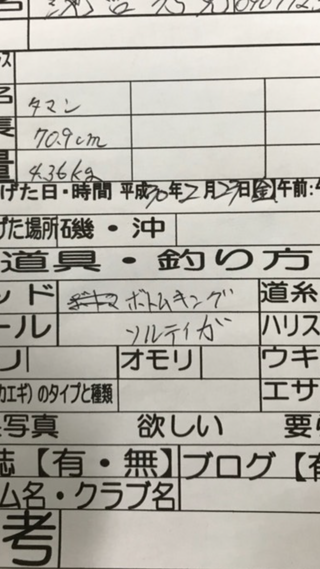 名 タマン
長 70.9cm
量 4.36kg
げた日・時間 平成30年2月23日【金】午前:
げた場所 磯・沖
道具・釣り方
ッド ボトムキング 道糸
ール ソルティガ ハリス
リ オモリ ウキ
カエギ)のタイプと種類 エサ
写真 欲しい 要
誌【有・無】 ブログ【有
ム名・クラブ名
考